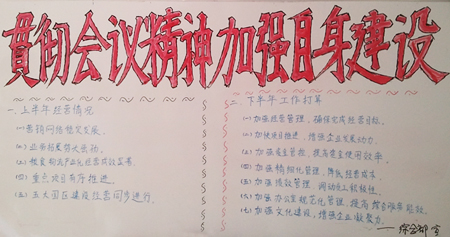 貫彻会议精神加强自身建设
一、上半年经营情况
㈠营销网络稳定发展。
㈡业务拓展
㈢粮食物流产业化经营成效显著。
㈣重点项目有序推进。
㈤五大园区建设经营同步进行。
二、下半年工作打算
㈠加强经营管理，确保完成经营目标。
㈡加快项目推进，增强企业发展动力。
㈢加强资金管控，提高资金使用效率。
㈣加强精细化管理，降低经营成本。
㈤加强绩效管理，调动员工积极性。
㈥加强办公室规范化管理，提高
㈦加强文化建设，增强企业凝聚力。
——综合部宣